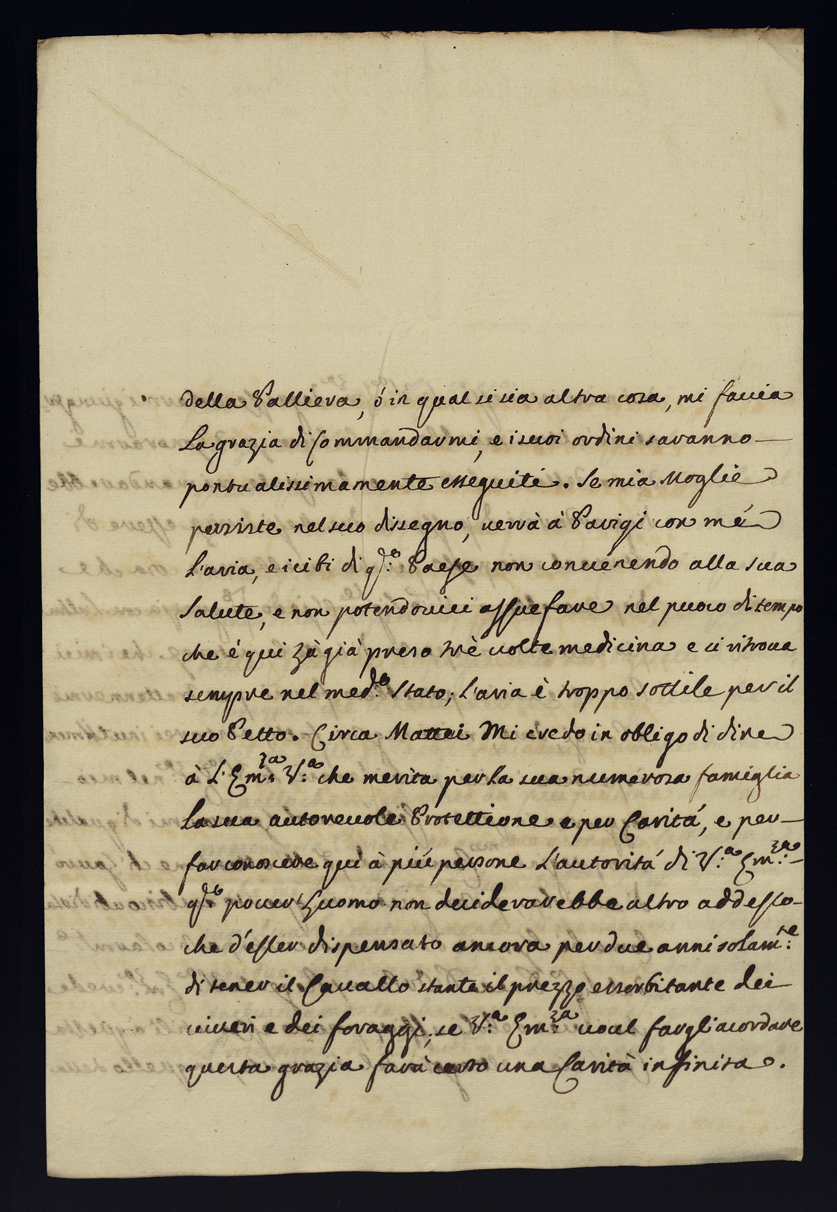 della Palliera, ó in qual si sia altra cosa, mi faccia
La grazia di Commandarmi, e i suoi ordini saranno
pontualissimamente esseguiti. Se mia Moglie
persiste nel suo dissegno, verrà à Parigi con mé
L'aria, e i cibi di q.to Paese non convenendo alla sua
Salute, e non potendovici assuefare nel puoco di tempo
che é qui hà già preso trè volte medicina e si ritrova
sempre nel med.o Stato; L'aria è troppo sottile per il
suo Petto. Circa Mattei Mi credo in obligo di dire
à L'Em.za V.a che merita per La sua numerosa famiglia
La sua autorevole Protettione e per Carità, e per
far conoscere qui à più persone L'autorità di V.a Em.za
q.to pover' huomo non deciderarebbe altro addesso
che d'esser dispensato ancora per due anni solam.te
di tener il Cavallo stante il prezzo essorbitante dei
viveri e dei foraggi, se V.a Em.za vouol fargli acordare
questa grazia farà certo una Carità infinita.